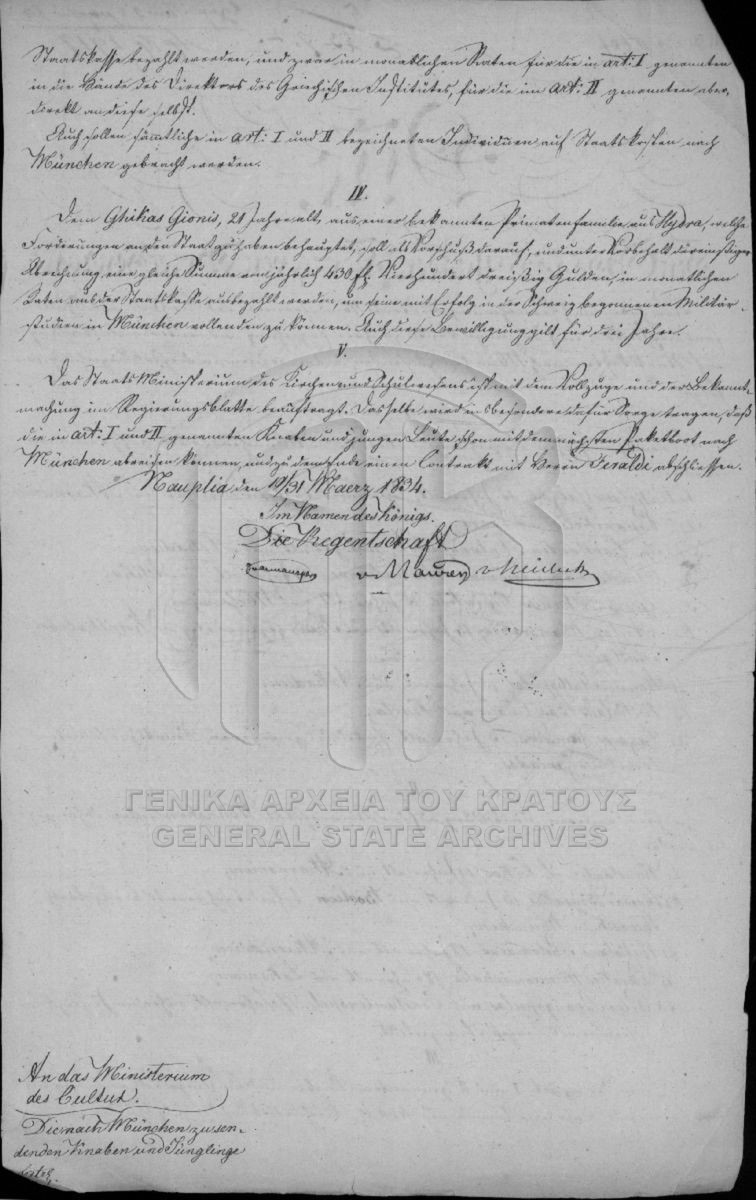 Staatskasse bezahlt werden, und zwar in monatlichen Raten für die in art: I genannten
in die Hände des Direktors des Griechischen Institutes, für die im art: II genannten aber,
direkt an diese selbst.
Auch sollen sämtliche in art: I und II bezeichneten Individuen auf Staatskosten nach
München gebracht werden.
IV.
Dem Ghikas Gionis, 21 Jahre alt, aus einer bekannten Primatenfamilie aus Hydra, welche
Forderungen an den Staat zu haben behauptet, soll als Vorschuß darauf, und unter Vorbehalt
Abrechnung eine gleiche Summe von jährlich 430 fl. Vierhundert dreißig Gulden, in monatlichen
Raten aus der Staatskasse ausbezahlt werden, um seine mit Erfolg in der Schweiz begonnenen Militär-
studien in München vollenden zu können. Auch diese Bewilligung gilt für drei Jahre.
V.
Das Staats Ministerium des Kirchen und Schulwesens ist mit dem Vollzuge und der Bekannt-
machung im Regierungsblatte beauftragt. Dasselbe wird insbesondere dafür Sorge tragen, daß
die in art: I und II genannten Knaben und jungen Leute schon mit dem nächsten Paketboot nach
München abreisen können, und zu dem Ende einen Contrakt mit Herrn Feraldi abschliessen.
Nauplia den 19/31 Maerz 1834.
Im Namen des Königs.
Die Regentschaft
v Maurer v Heideck
ΓΕΝΙΚΑ ΑΡΧΕΙΑ ΤΟΥ ΚΡΑΤΟΥΣ
GENERAL STATE ARCHIVES
An das Ministerium
des Cultus.
Die nach München zu sen-
denden Knaben und Jünglinge